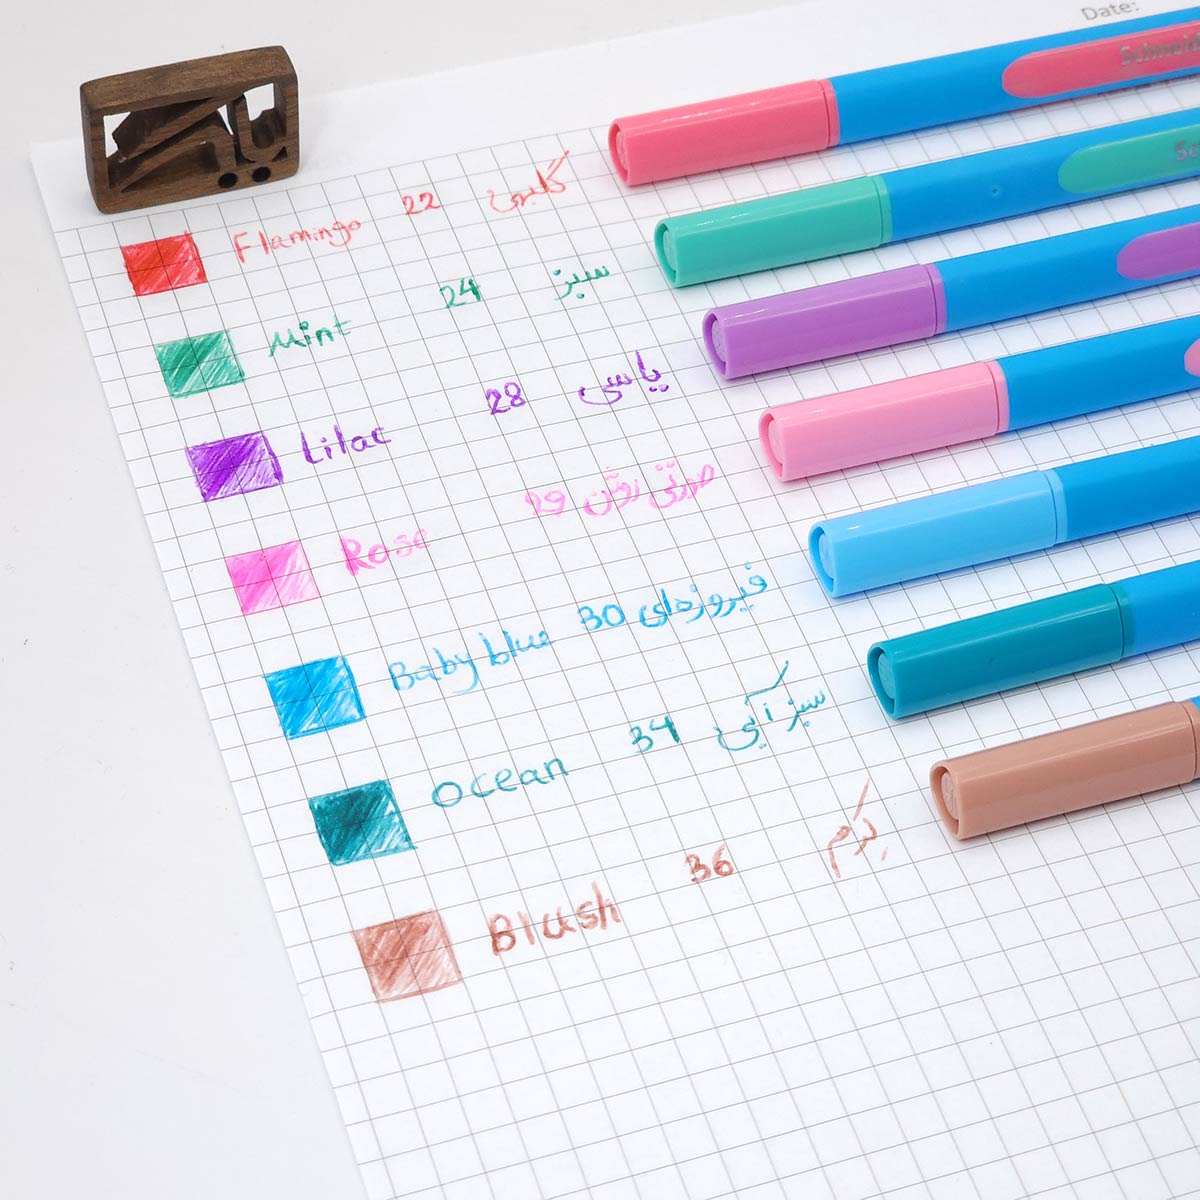 Date:
Schneid
Sc
Flamingo 22 گلبهی
Mint 24 سبز
Lilac 28 یاسی
Rose 29 صورتی روشن
Baby blue 30 فیروزه‌ای
Ocean 34 سبز آبی
Blush 36 کِرِم